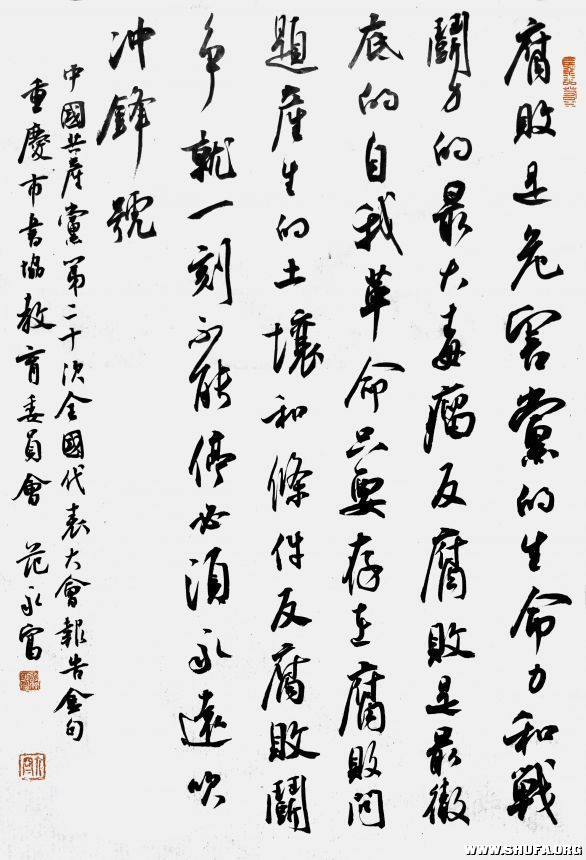 腐敗是危害黨的生命力和戰
鬭力的最大毒瘤反腐敗是最徹
底的自我革命只要存在腐敗問
題産生的土壤和條件反腐敗鬭
争就一刻不能停必須永遠吹
冲鋒號
中國共産黨第二十次全國代表大會報告金句
重慶市書協教育委員會 范永富
WWW.SHUFA.ORG